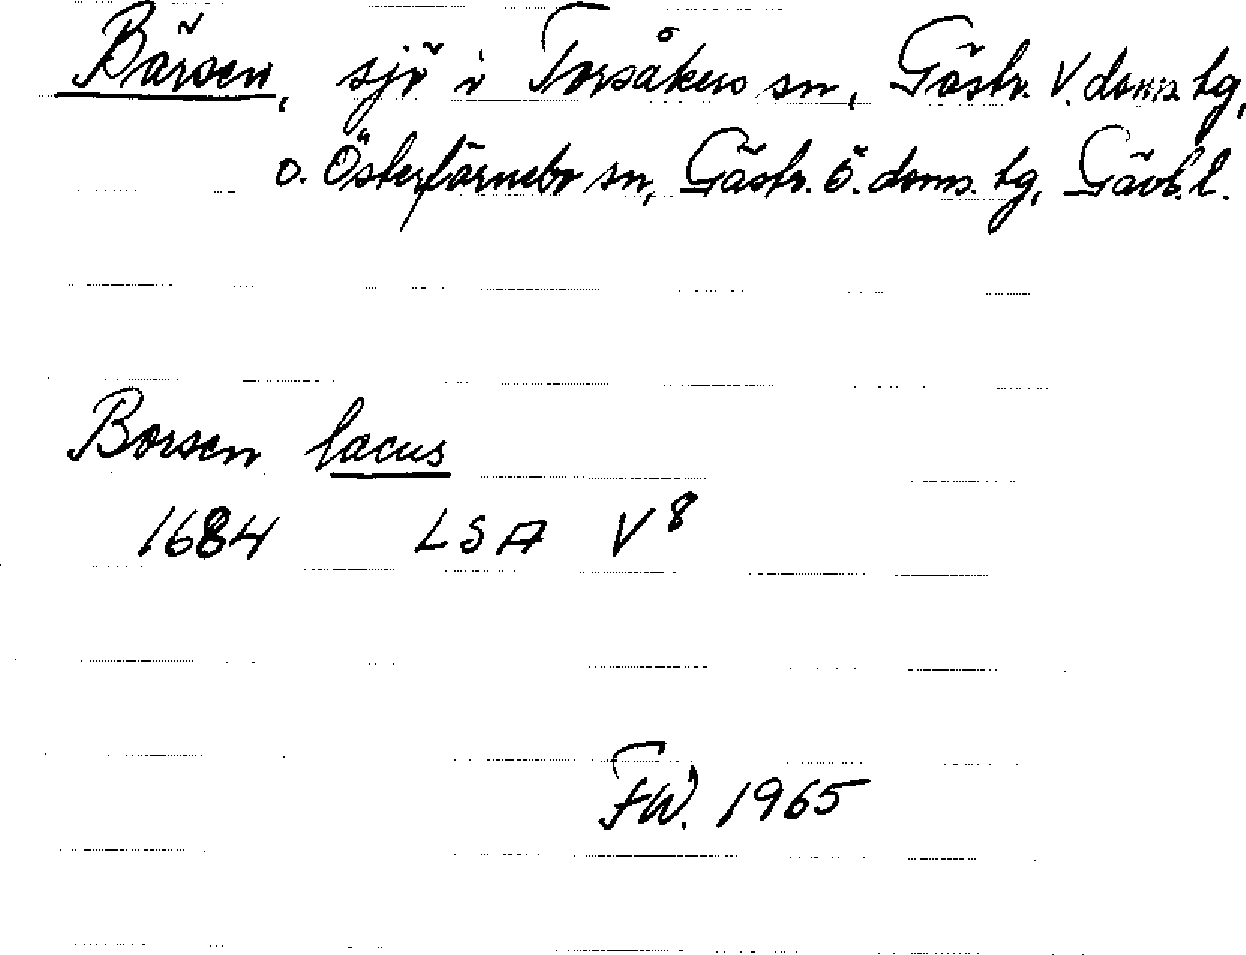 Bärsen, sjö i Torsåkers sn, Gästr. V. doms. tg,
o. Österfärnebo sn, Gästr. ö. doms. tg, Gävb. l.
Borsen lacus
1684 LSA V⁸
F.W. 1965